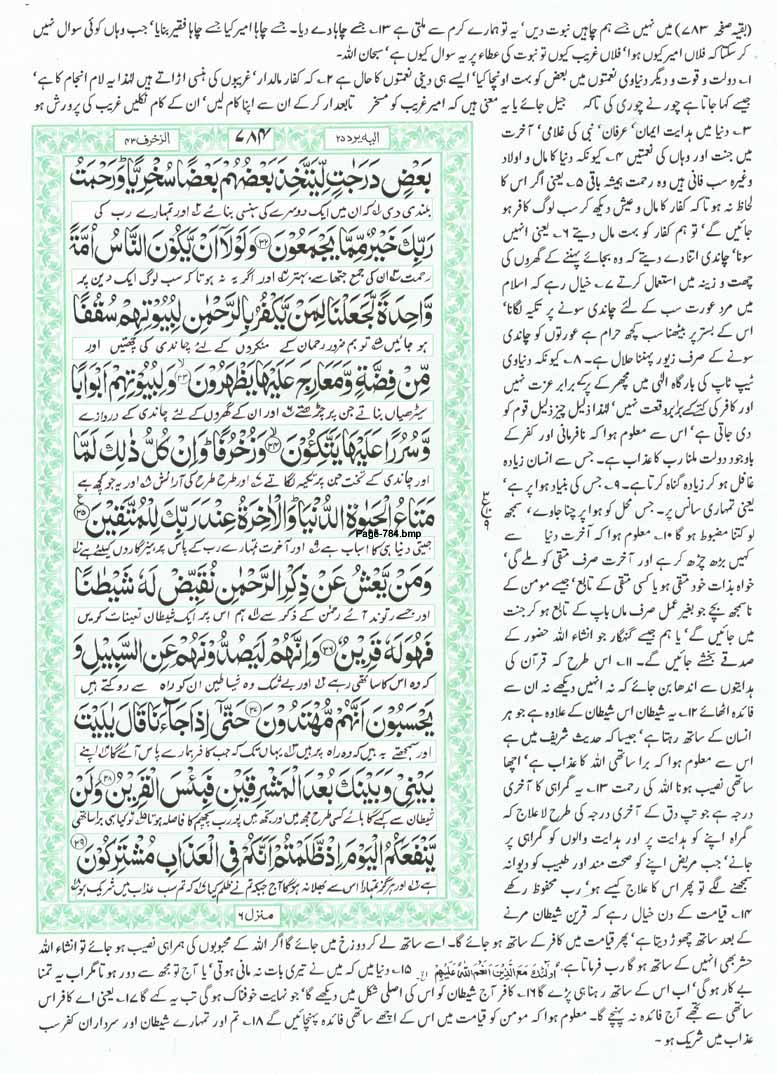 (بقیہ صفحہ ۷۸۳) میں نہیں جسے ہم چاہیں نبوت دیں' یہ تو ہمارے کرم سے ملتی ہے ۱۳۔ جسے چاہا دے دیا۔ جسے چاہا امیر کیا جسے چاہا فقیر بنایا' جب وہاں کوئی سوال نہیں
کر سکتا کہ فلاں امیر کیوں ہوا' فلاں غریب کیوں تو نبوت کی عطاء پر یہ سوال کیوں ہے' سبحان اللہ۔
۱۔ دولت و قوت و دیگر دنیاوی نعمتوں میں بعض کو بہت اونچا کیا' ایسے ہی دینی نعمتوں کا حال ہے ۲۔ کہ کفار مالدار' غریبوں کی ہنسی اڑاتے ہیں لہٰذا یہ لام انجام کا ہے'
جیسے کہا جاتا ہے چور نے چوری کی تاکہ جیل جائے یا یہ معنی ہیں کہ امیر غریب کو مسخر تابعدار کر کے ان سے اپنا کام لیں' ان کے کام نکلیں غریب کی پرورش ہو
الزخرف ۴۳
۷۸۴
الیہ یرد ۲۵
بَعْضٍ دَرَجٰتٍ لِّیَتَّخِذَ بَعْضُهُمْ بَعْضًا سُخْرِیًّا ؕ وَ رَحْمَتُ
بلندی دی کہ ان میں ایک دوسرے کی ہنسی بنائے اور تمہارے رب کی
رَبِّكَ خَیْرٌ مِّمَّا یَجْمَعُوْنَ ﴿۳۲﴾ وَ لَوْلَاۤ اَنْ یَّكُوْنَ النَّاسُ اُمَّةً
رحمت ان کی جمع جتھا سے بہتر اور اگر یہ نہ ہوتا کہ سب لوگ ایک دین پر
وَّاحِدَةً لَّجَعَلْنَا لِمَنْ یَّكْفُرُ بِالرَّحْمٰنِ لِبُیُوْتِهِمْ سُقُفًا
ہو جائیں تو ہم ضرور رحمان کے منکروں کے لئے چاندی کی چھتیں اور
مِّنْ فِضَّةٍ وَّ مَعَارِجَ عَلَیْهَا یَظْهَرُوْنَ ﴿۳۳﴾ وَ لِبُیُوْتِهِمْ اَبْوَابًا
سیڑھیاں بناتے جن پر چڑھتے اور ان کے گھروں کے لئے چاندی کے دروازے
وَّ سُرُرًا عَلَیْهَا یَتَّكِـُٔوْنَ ﴿۳۴﴾ وَ زُخْرُفًا ؕ وَ اِنْ كُلُّ ذٰلِكَ لَمَّا
اور چاندی کے تخت جن پر تکیہ لگاتے اور طرح طرح کی آرائش اور یہ جو کچھ ہے
مَتَاعُ الْحَیٰوةِ الدُّنْیَا ؕ وَ الْاٰخِرَةُ عِنْدَ رَبِّكَ لِلْمُتَّقِیْنَ ﴿۳۵﴾
Page-784.bmp
جیتی دنیا ہی کا اسباب ہے اور آخرت تمہارے رب کے پاس پرہیزگاروں کیلئے ہے
وَ مَنْ یَّعْشُ عَنْ ذِكْرِ الرَّحْمٰنِ نُقَیِّضْ لَهٗ شَیْطٰنًا
اور جسے رتوند آئے رحمٰن کے ذکر سے ہم اس پر ایک شیطان تعینات کریں
فَهُوَ لَهٗ قَرِیْنٌ ﴿۳۶﴾ وَ اِنَّهُمْ لَیَصُدُّوْنَهُمْ عَنِ السَّبِیْلِ وَ
کہ وہ اس کا ساتھی رہے اور بے شک وہ شیاطین ان کو راہ سے روکتے ہیں
یَحْسَبُوْنَ اَنَّهُمْ مُّهْتَدُوْنَ ﴿۳۷﴾ حَتّٰۤی اِذَا جَآءَنَا قَالَ یٰلَیْتَ
اور سمجھتے یہ ہیں کہ وہ راہ پر ہیں یہاں تک کہ جب کافر ہمارے پاس آئے گا اپنے
بَیْنِیْ وَ بَیْنَكَ بُعْدَ الْمَشْرِقَیْنِ فَبِئْسَ الْقَرِیْنُ ﴿۳۸﴾ وَ لَنْ
شیطان سے کہے گا ہائے کسی طرح مجھ میں اور تجھ میں پورب پچھم کا فاصلہ ہوتا تو کیا ہی برا ساتھی
یَّنْفَعَكُمُ الْیَوْمَ اِذْ ظَّلَمْتُمْ اَنَّكُمْ فِی الْعَذَابِ مُشْتَرِكُوْنَ ﴿۳۹﴾
ہے اور ہرگز تمہارا اس سے بھلا نہ ہوگا آج جبکہ تم نے ظلم کیا کہ تم سب عذاب میں شریک ہو
منزل ۶
۳۔ دنیا میں ہدایت ایمان' عرفان' نبی کی غلامی' آخرت
میں جنت اور وہاں کی نعمتیں ۴۔ کیونکہ دنیا کا مال و اولاد
وغیرہ سب فانی ہیں وہ رحمت ہمیشہ باقی ۵۔ یعنی اگر اس کا
لحاظ نہ ہوتا کہ کفار کا مال و عیش دیکھ کر سب لوگ کافر ہو
جائیں گے' تو ہم کفار کو بہت مال دیتے ۶۔ یعنی انہیں
سونا' چاندی اتنا دے دیتے کہ وہ بجائے پہننے کے گھروں کی
چھت و زینہ میں استعمال کرتے ۷۔ خیال رہے کہ اسلام
میں مرد عورت سب کے لئے چاندی سونے پر تکیہ لگانا'
اس کے بستر پر بیٹھنا سب کچھ حرام ہے عورتوں کو چاندی
سونے کے صرف زیور پہننا حلال ہے۔ ۸۔ کیونکہ دنیاوی
ٹیپ ٹاپ کی بارگاہ الٰہی میں مچھر کے پر کے برابر عزت نہیں
اور کافر کی کتے کے برابر وقعت نہیں' لہٰذا ذلیل چیز ذلیل قوم کو
دی جاتی ہے' اس سے معلوم ہوا کہ نافرمانی اور کفر کے
باوجود دولت ملنا رب کا عذاب ہے۔ جس سے انسان زیادہ
غافل ہو کر زیادہ گناہ کرتا ہے۔ ۹۔ جس کی بنیاد ہوا پر ہے'
یعنی تمہاری سانس پر۔ جس محل کو ہوا پر چنا جاوے' سمجھ
لو کتنا مضبوط ہو گا ۱۰۔ معلوم ہوا کہ آخرت دنیا سے
کہیں بڑھ چڑھ کر ہے اور آخرت صرف متقی کو ملے گی'
خواہ بذات خود متقی ہو یا کسی متقی کے تابع' جیسے مومن کے
ناسمجھ بچے جو بغیر عمل صرف ماں باپ کے تابع ہو کر جنت
میں جائیں گے' یا ہم جیسے گنہگار جو انشاء اللہ حضور کے
صدقے بخشے جائیں گے۔ ۱۱۔ اس طرح کہ قرآن کی
ہدایتوں سے اندھا بن جائے کہ نہ انہیں دیکھے نہ ان سے
فائدہ اٹھائے ۱۲۔ یہ شیطان اس شیطان کے علاوہ ہے جو ہر
انسان کے ساتھ رہتا ہے' جیسا کہ حدیث شریف میں ہے
اس سے معلوم ہوا کہ برا ساتھی اللہ کا عذاب ہے' اچھا
ساتھی نصیب ہونا اللہ کی رحمت ۱۳۔ یہ گمراہی کا آخری
درجہ ہے جو تپ دق کے آخری درجہ کی طرح لا علاج کہ
گمراہ اپنے کو ہدایت پر اور ہدایت والوں کو گمراہی پر
جانے' جب مریض اپنے کو صحت مند اور طبیب کو دیوانہ
سمجھنے لگے تو پھر اس کا علاج کیسے ہو' رب محفوظ رکھے
۱۴۔ قیامت کے دن خیال رہے کہ قرین شیطان مرنے
کے بعد ساتھ چھوڑ دیتا ہے' پھر قیامت میں کافر کے ساتھ ہو جائے گا۔ اسے ساتھ لے کر دوزخ میں جائے گا اگر اللہ کے محبوبوں کی ہمراہی نصیب ہو جائے تو انشاء اللہ
حشر بھی انہیں کے ساتھ ہو گا رب فرماتا ہے۔ اُولٰٓئِكَ مَعَ الَّذِیْنَ اَنْعَمَ اللّٰهُ عَلَیْهِمْ ۱۵۔ دنیا میں کہ میں نے تیری بات نہ مانی ہوتی' یا آج تو مجھ سے دور ہوتا مگر اب یہ تمنا
بے کار ہو گی' اب اس کے ساتھ رہنا ہی پڑے گا ۱۶۔ کافر آج شیطان کو اس کی اصلی شکل میں دیکھے گا' جو نہایت خوفناک ہو گی تب یہ کہے گا ۱۷۔ یعنی اے کافر اس
ساتھی سے تجھے آج فائدہ نہ پہنچے گا۔ معلوم ہوا کہ مومن کو قیامت میں اس کے اچھے ساتھی فائدہ پہنچائیں گے ۱۸۔ تم اور تمہارے شیطان اور سرداران کفر سب
عذاب میں شریک ہو۔